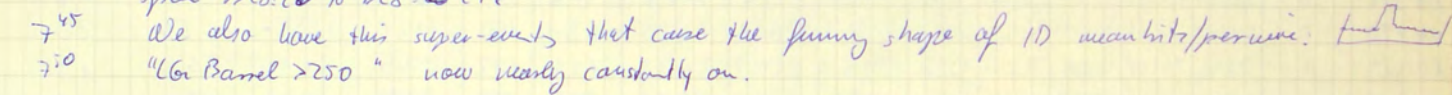 7⁴⁵ We also have this super-events that cause the funny shape of 1D mean hits/per wire:
7⁵⁰ "LGr Barrel >250" now nearly constantly on.